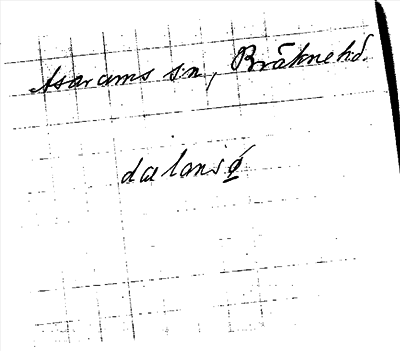 Asarams sn, Bräknehd.
dalansö